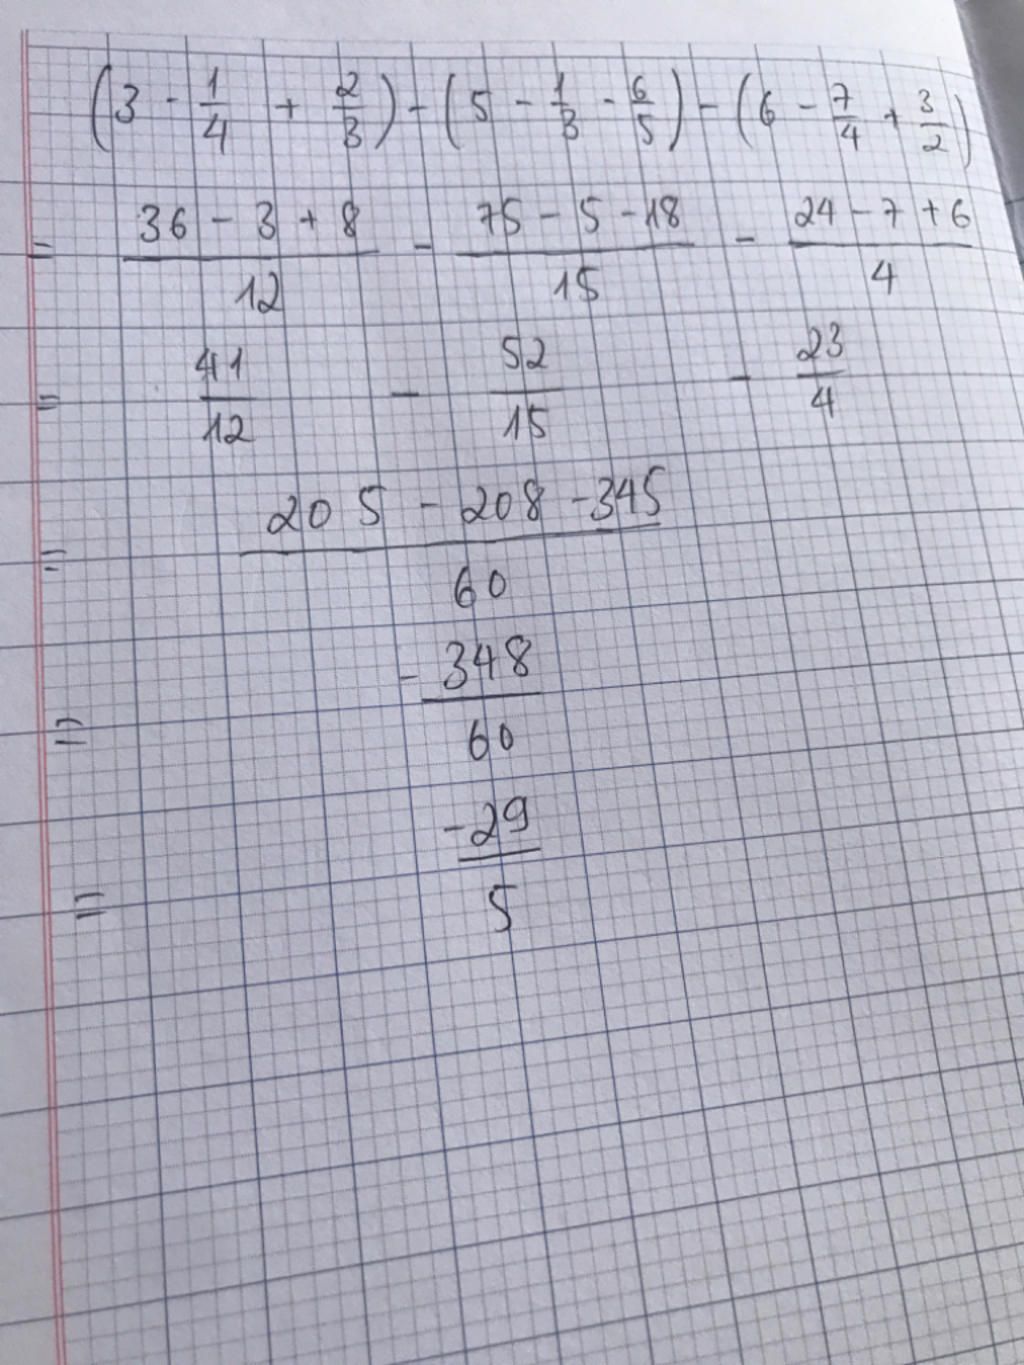 (3 - 1/4 + 2/3) - (5 - 1/3 - 6/5) - (6 - 7/4 + 3/2)
= (36 - 3 + 8)/12 - (75 - 5 - 18)/15 - (24 - 7 + 6)/4
= 41/12 - 52/15 - 23/4
= (205 - 208 - 345)/60
= -348/60
= -29/5